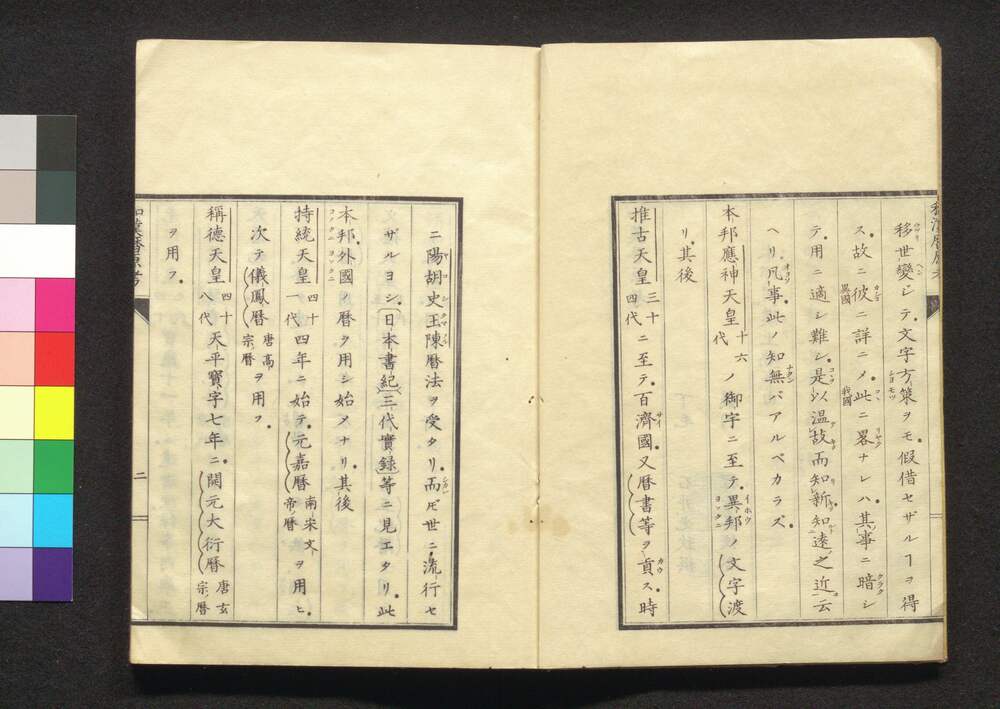 移世變シテ文字方策ヲモ假借セザルヿヲ得
ス故ニ彼ニ詳ニメ此ニ畧ナレハ其事ニ暗シ
テ用ニ適シ難シ是以温故而知新知遠之近云
ヘリ凡事此ノ知無バアルベカラズ
本邦應神天皇十六代ノ御宇ニ至テ異邦ノ文字渡
リ其後
推古天皇三十四代ニ至テ百濟國又暦書等ヲ貢ス時
ニ陽胡史王陳暦法ヲ受タリ而㪽世ニ流行セ
ザルヨシ日本書紀三代實録等ニ見エタリ此
本邦外國ノ暦タ用シ始メナリ其後
持統天皇四十一代四年ニ始テ元嘉暦南宋文帝暦ヲ用ヒ
次テ儀鳳暦唐高宗暦ヲ用フ
稱德天皇四十八代天平寶字七年ニ開元大衍暦唐玄宗暦
ヲ用フ
二